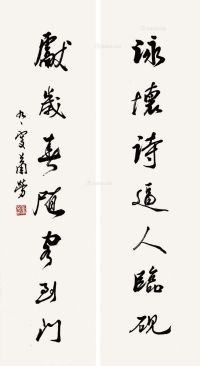 詠懷詩逼人臨硯
獻歲春隨客到門
九二叟蕭勞